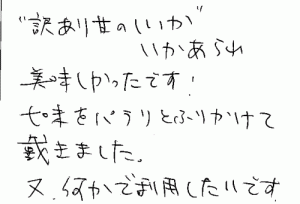 "訳あり甘のしいか"
いかあられ
美味しかったです!
七味をパラリとふりかけて
戴きました。
又、何かで利用したいです